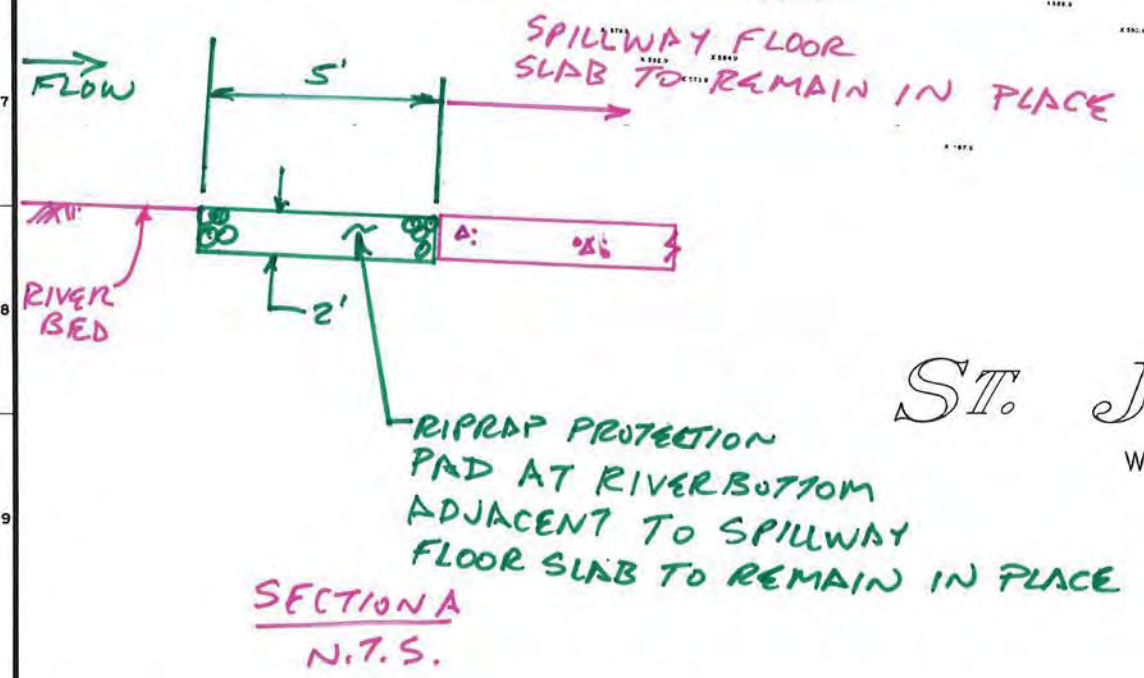 SPILLWAY FLOOR
SLAB TO REMAIN IN PLACE
FLOW
5'
7
RIVER
BED
8
2'
ST. J
W
RIPRAP PROTECTION
PAD AT RIVERBOTTOM
ADJACENT TO SPILLWAY
FLOOR SLAB TO REMAIN IN PLACE
9
SECTION A
N.T.S.